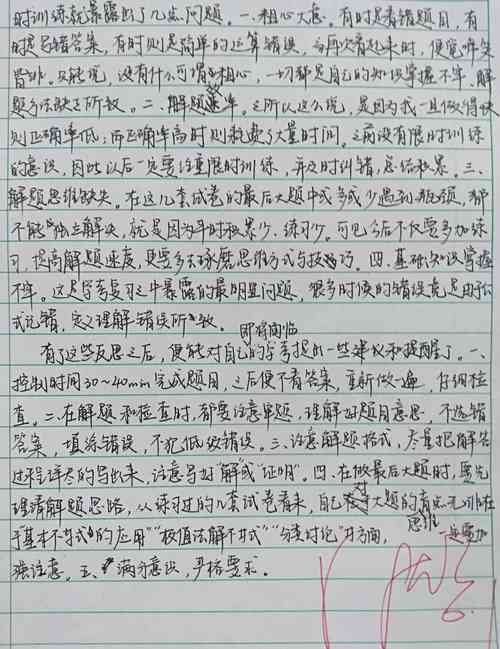 时训练就暴露出了几点问题。一、粗心大意。有时是看错题目,有
时是写错答案,有时则是简单的运算错误,当再次看起来时,便觉啼笑
皆非。只能说,没有什么可谓粗心,一切都是自己的知识掌握不牢、解
题方法缺乏所致。二、解题速率。之所以这么说,是因为我一旦做得快
则正确率低;而正确率高时则耗费了大量时间。之前没有限时训练
的意识,因此以后一定要注重限时训练,并及时纠错,总结积累。三、
解题思维缺失。在这几套试卷的最后大题中或多或少遇到瓶颈,都
不能独立解决,就是因为平时积累少、练习少。可见今后不仅要多加练
习,提高解题速度,更要多去琢磨思维方式与技巧。四、基础知识掌握
不牢。这是学考复习之中暴露的最明显问题,很多时候的错误竟是因公
式记错,定义理解错误所致。
即将面临
有了这些反思之后,便能对自己的学考提出一些建议和提醒了。一、
控制时间30~40min完成题目,之后便不看答案,重新做一遍,仔细检
查。二、在解题和检查时,都要注意审题,理解好题目意思,不选错
答案,填涂错误,不犯低级错误。三、注意解题格式,尽量把解答
过程详尽的写出来,注意写好“解”或“证明”。四、在做最后大题时,要先
理清解题思路,从练习过的几套试卷看来,自己对大题的盲点无非在
于“基本不等式的应用”“极值法解不等式”“分类讨论”思维等方面,一定要加
强注意。五、满分意识,严格要求。